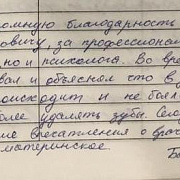 омную благодарность
овичу, за профессионал
но и психолога. Во вре
вал и объяснял сто в
оисходит и не боял
более удалять зубы. Сег
ие впечатления о врач
материнское
Бо